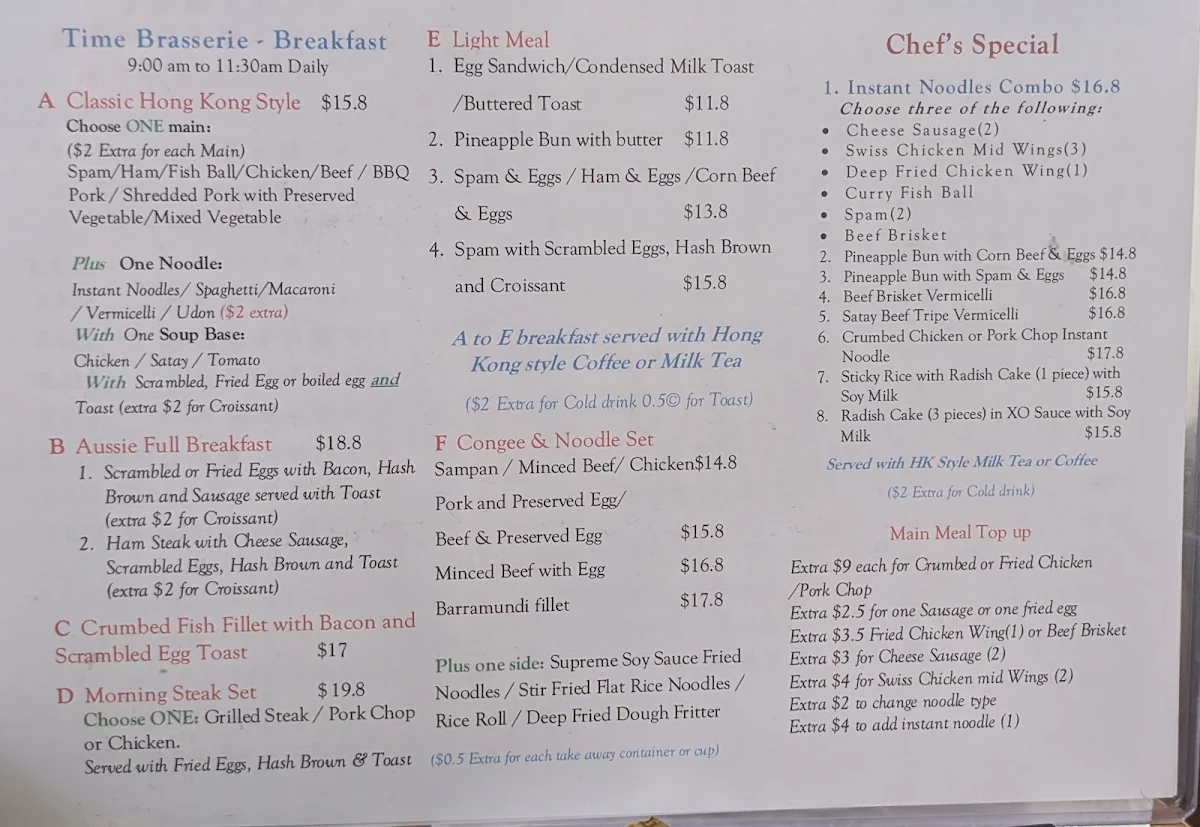 Time Brasserie - Breakfast
9:00 am to 11:30am Daily
A Classic Hong Kong Style $15.8
Choose ONE main:
($2 Extra for each Main)
Spam/Ham/Fish Ball/Chicken/Beef / BBQ
Pork / Shredded Pork with Preserved
Vegetable/Mixed Vegetable
Plus One Noodle:
Instant Noodles/ Spaghetti/Macaroni
/ Vermicelli / Udon ($2 extra)
With One Soup Base:
Chicken / Satay / Tomato
With Scrambled, Fried Egg or boiled egg and
Toast (extra $2 for Croissant)
B Aussie Full Breakfast $18.8
1. Scrambled or Fried Eggs with Bacon, Hash
Brown and Sausage served with Toast
(extra $2 for Croissant)
2. Ham Steak with Cheese Sausage,
Scrambled Eggs, Hash Brown and Toast
(extra $2 for Croissant)
C Crumbed Fish Fillet with Bacon and
Scrambled Egg Toast $17
D Morning Steak Set $19.8
Choose ONE: Grilled Steak / Pork Chop
or Chicken.
Served with Fried Eggs, Hash Brown & Toast
E Light Meal
1. Egg Sandwich/Condensed Milk Toast
/Buttered Toast $11.8
2. Pineapple Bun with butter $11.8
3. Spam & Eggs / Ham & Eggs /Corn Beef
& Eggs $13.8
4. Spam with Scrambled Eggs, Hash Brown
and Croissant $15.8
A to E breakfast served with Hong
Kong style Coffee or Milk Tea
($2 Extra for Cold drink 0.5© for Toast)
F Congee & Noodle Set
Sampan / Minced Beef/ Chicken$14.8
Pork and Preserved Egg/
Beef & Preserved Egg $15.8
Minced Beef with Egg $16.8
Barramundi fillet $17.8
Plus one side: Supreme Soy Sauce Fried
Noodles / Stir Fried Flat Rice Noodles /
Rice Roll / Deep Fried Dough Fritter
($0.5 Extra for each take away container or cup)
Chef's Special
1. Instant Noodles Combo $16.8
Choose three of the following:
• Cheese Sausage(2)
• Swiss Chicken Mid Wings(3)
• Deep Fried Chicken Wing(1)
• Curry Fish Ball
• Spam(2)
• Beef Brisket
2. Pineapple Bun with Corn Beef & Eggs $14.8
3. Pineapple Bun with Spam & Eggs $14.8
4. Beef Brisket Vermicelli $16.8
5. Satay Beef Tripe Vermicelli $16.8
6. Crumbed Chicken or Pork Chop Instant
Noodle $17.8
7. Sticky Rice with Radish Cake (1 piece) with
Soy Milk $15.8
8. Radish Cake (3 pieces) in XO Sauce with Soy
Milk $15.8
Served with HK Style Milk Tea or Coffee
($2 Extra for Cold drink)
Main Meal Top up
Extra $9 each for Crumbed or Fried Chicken
/Pork Chop
Extra $2.5 for one Sausage or one fried egg
Extra $3.5 Fried Chicken Wing(1) or Beef Brisket
Extra $3 for Cheese Sausage (2)
Extra $4 for Swiss Chicken mid Wings (2)
Extra $2 to change noodle type
Extra $4 to add instant noodle (1)